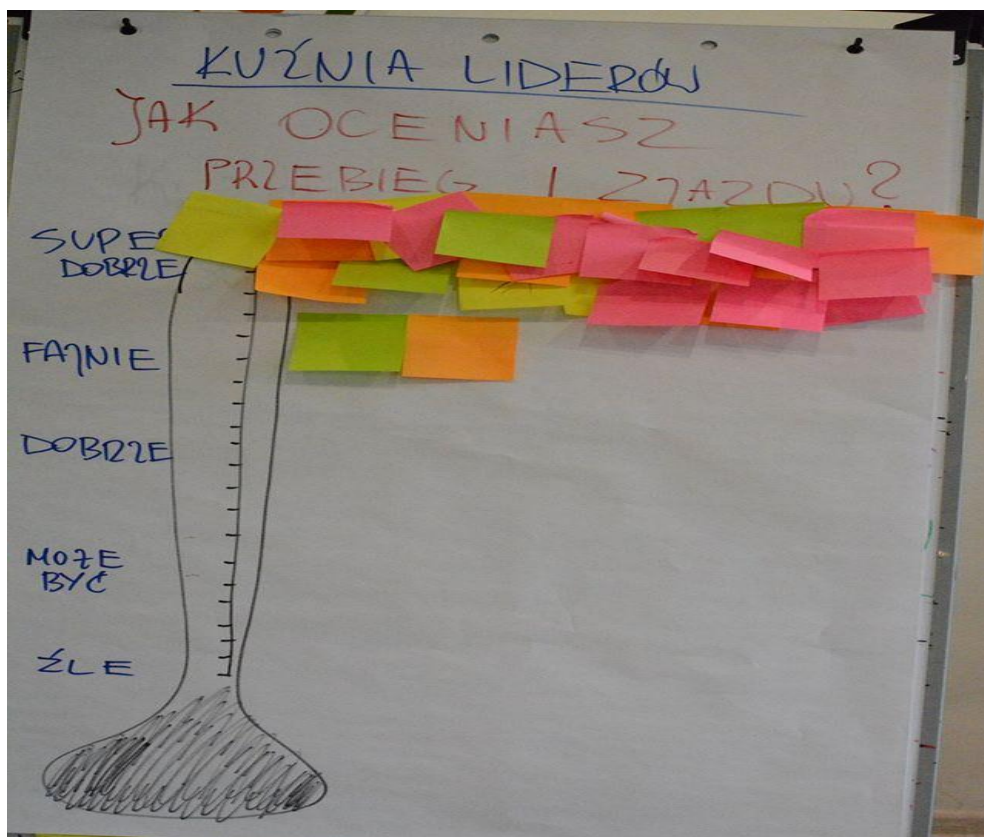 KUŹNIA LIDERÓW
JAK OCENIASZ
PRZEBIEG I ZJAZDU?
SUPER
DOBRZE
FAJNIE
DOBRZE
MOŻE
BYĆ
ŹLE